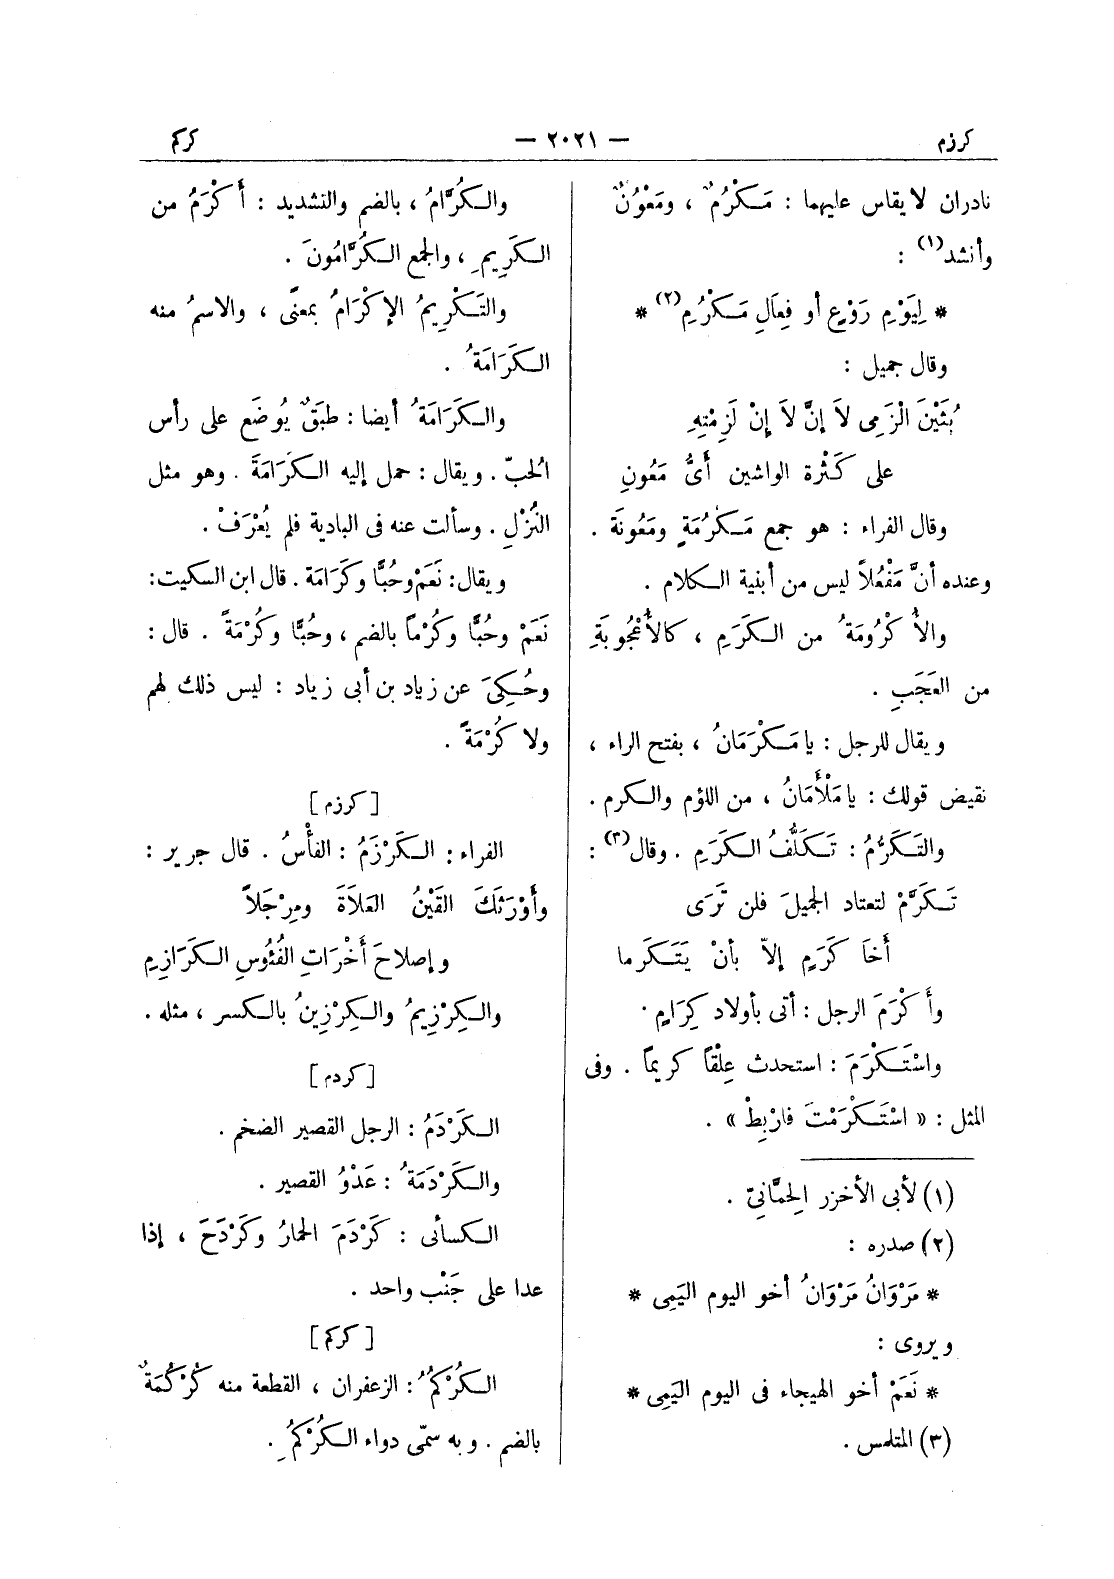 كرزم — ٢٠٢١ — كركم
نادران لا يقاس عليهما : مَكْرُمٌ ، ومَعْوُنٌ
وأنشد(١) :
* لِيَوْمِ رَوْعٍ أو فِعَالِ مَكْرُمِ(٢) *
وقال جميل :
بُثَيْنَ الْزَمِى لاَ إنَّ لاَ إنْ لَزِمْتِهِ
على كَثْرَة الواشين أَىُّ مَعُونِ
وقال الفراء : هو جمع مَكْرُمَةٍ ومَعُونَة .
وعنده أنَّ مَفْعُلاً ليس من أبنية الكلام .
والأُكْرُومَةُ من الكَرَمِ ، كالأُعْجُوبَةِ
من العَجَبِ .
ويقال للرجل : يا مَكْرَمَانُ ، بفتح الراء ،
نقيض قولك : يا مَلْأَمَانُ ، من اللؤم والكرم .
والتَكَرُّمُ : تَكَلُّفُ الكَرَمِ . وقال(٣) :
تَكَرَّمْ لتعتاد الجميلَ فلن تَرَى
أَخَا كَرَمٍ إلاّ بأنْ يَتَكَرما
وأَكْرَمَ الرجل : أتى بأولاد كِرَامٍ .
واسْتَكْرَمَ : استحدث عِلْقاً كريماً . وفى
المثل : « اسْتَكْرَمْتَ فارْبِطْ » .
(١) لأبى الأخزر الحِمَّانِىّ .
(٢) صدره :
* مَرْوَانُ مَرْوَانُ أخو اليوم اليَمِى *
ويروى :
* نَعَمْ أخو الهيجاء فى اليوم اليَمِى *
(٣) المتلمس .
والكُرَّامُ ، بالضم والتشديد : أَكْرَمُ من
الكَرِيمِ ، والجمع الكُرَّامُونَ .
والتَكْرِيمُ الإكْرَامُ بمعنًى ، والاسمُ منه
الكَرَامَةُ .
والكَرَامَةُ أيضا : طبَقٌ يُوضَع على رأس
الحُبّ . ويقال : حمل إليه الكَرَامَةَ . وهو مثل
النُزْلِ . وسألت عنه فى البادية فلم يُعْرَفْ .
ويقال : نَعَمْ وحُبًّا وكَرَامَة . قال ابن السكيت :
نَعَمْ وحُبًّا وكُرْماً بالضم ، وحُبًّا وكُرْمَةً . قال :
وحُكِىَ عن زياد بن أبى زياد : ليس ذلك لهم
ولا كُرْمَةً .
[ كرزم ]
الفراء : الكَرْزَمُ : الفأْسُ . قال جرير :
وأَوْرَثَكَ القَيْنُ العَلاَةَ ومِرْجَلاً
وإصلاحَ أَخْرَاتِ الفُئُوسِ الكَرَازِمِ
والكِرْزِيمُ والكِرْزِينُ بالكسر ، مثله .
[ كردم ]
الكَرْدَمُ : الرجل القصير الضخم .
والكَرْدَمَةُ : عَدْوُ القصير .
الكسائى : كَرْدَمَ الحمارُ وكَرْدَحَ ، إذا
عدا على جَنْب واحد .
[ كركم ]
الكُرْكُمُ : الزعفران ، القطعة منه كُرْكُمَةٌ
بالضم . وبه سمّى دواء الكُرْكُمِ .